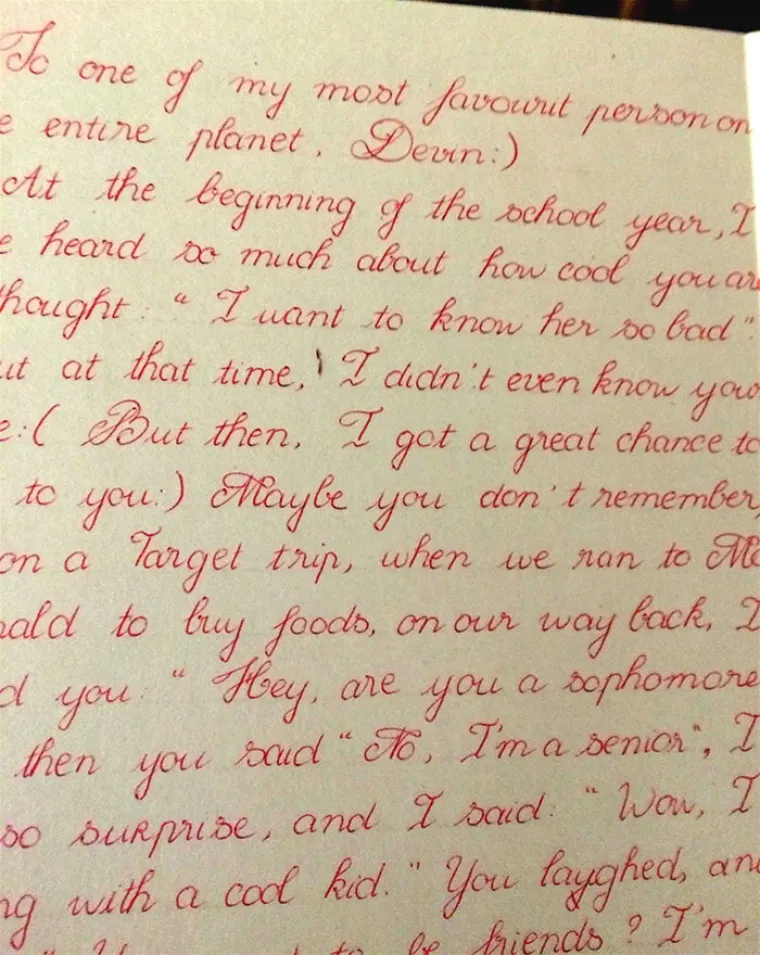 To one of my most favourit person on
e entire planet, Devin:)
At the beginning of the school year, I
e heard so much about how cool you are
hought: "I want to know her so bad".
ut at that time, I didn't even know you
e:( But then, I got a great chance to
to you:) Maybe you don't remember,
on a Target trip, when we ran to Mc
nald to buy foods, on our way back, I
d you: "Hey, are you a sophomore
then you said "No, I'm a senior", I
so surprise, and I said: "Wow, I
ng with a cool kid." You layghed, and
to be friends? I'm